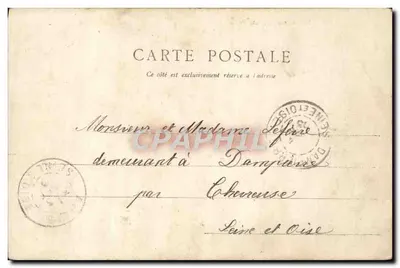 CARTE POSTALE
Ce côté est exclusivement réservé à l'adresse
CPAPHIL
Monsieur et Madame Lefèvre
demeurant à Dampierre
par Chevreuse
Seine et Oise
SEINE ET OISE